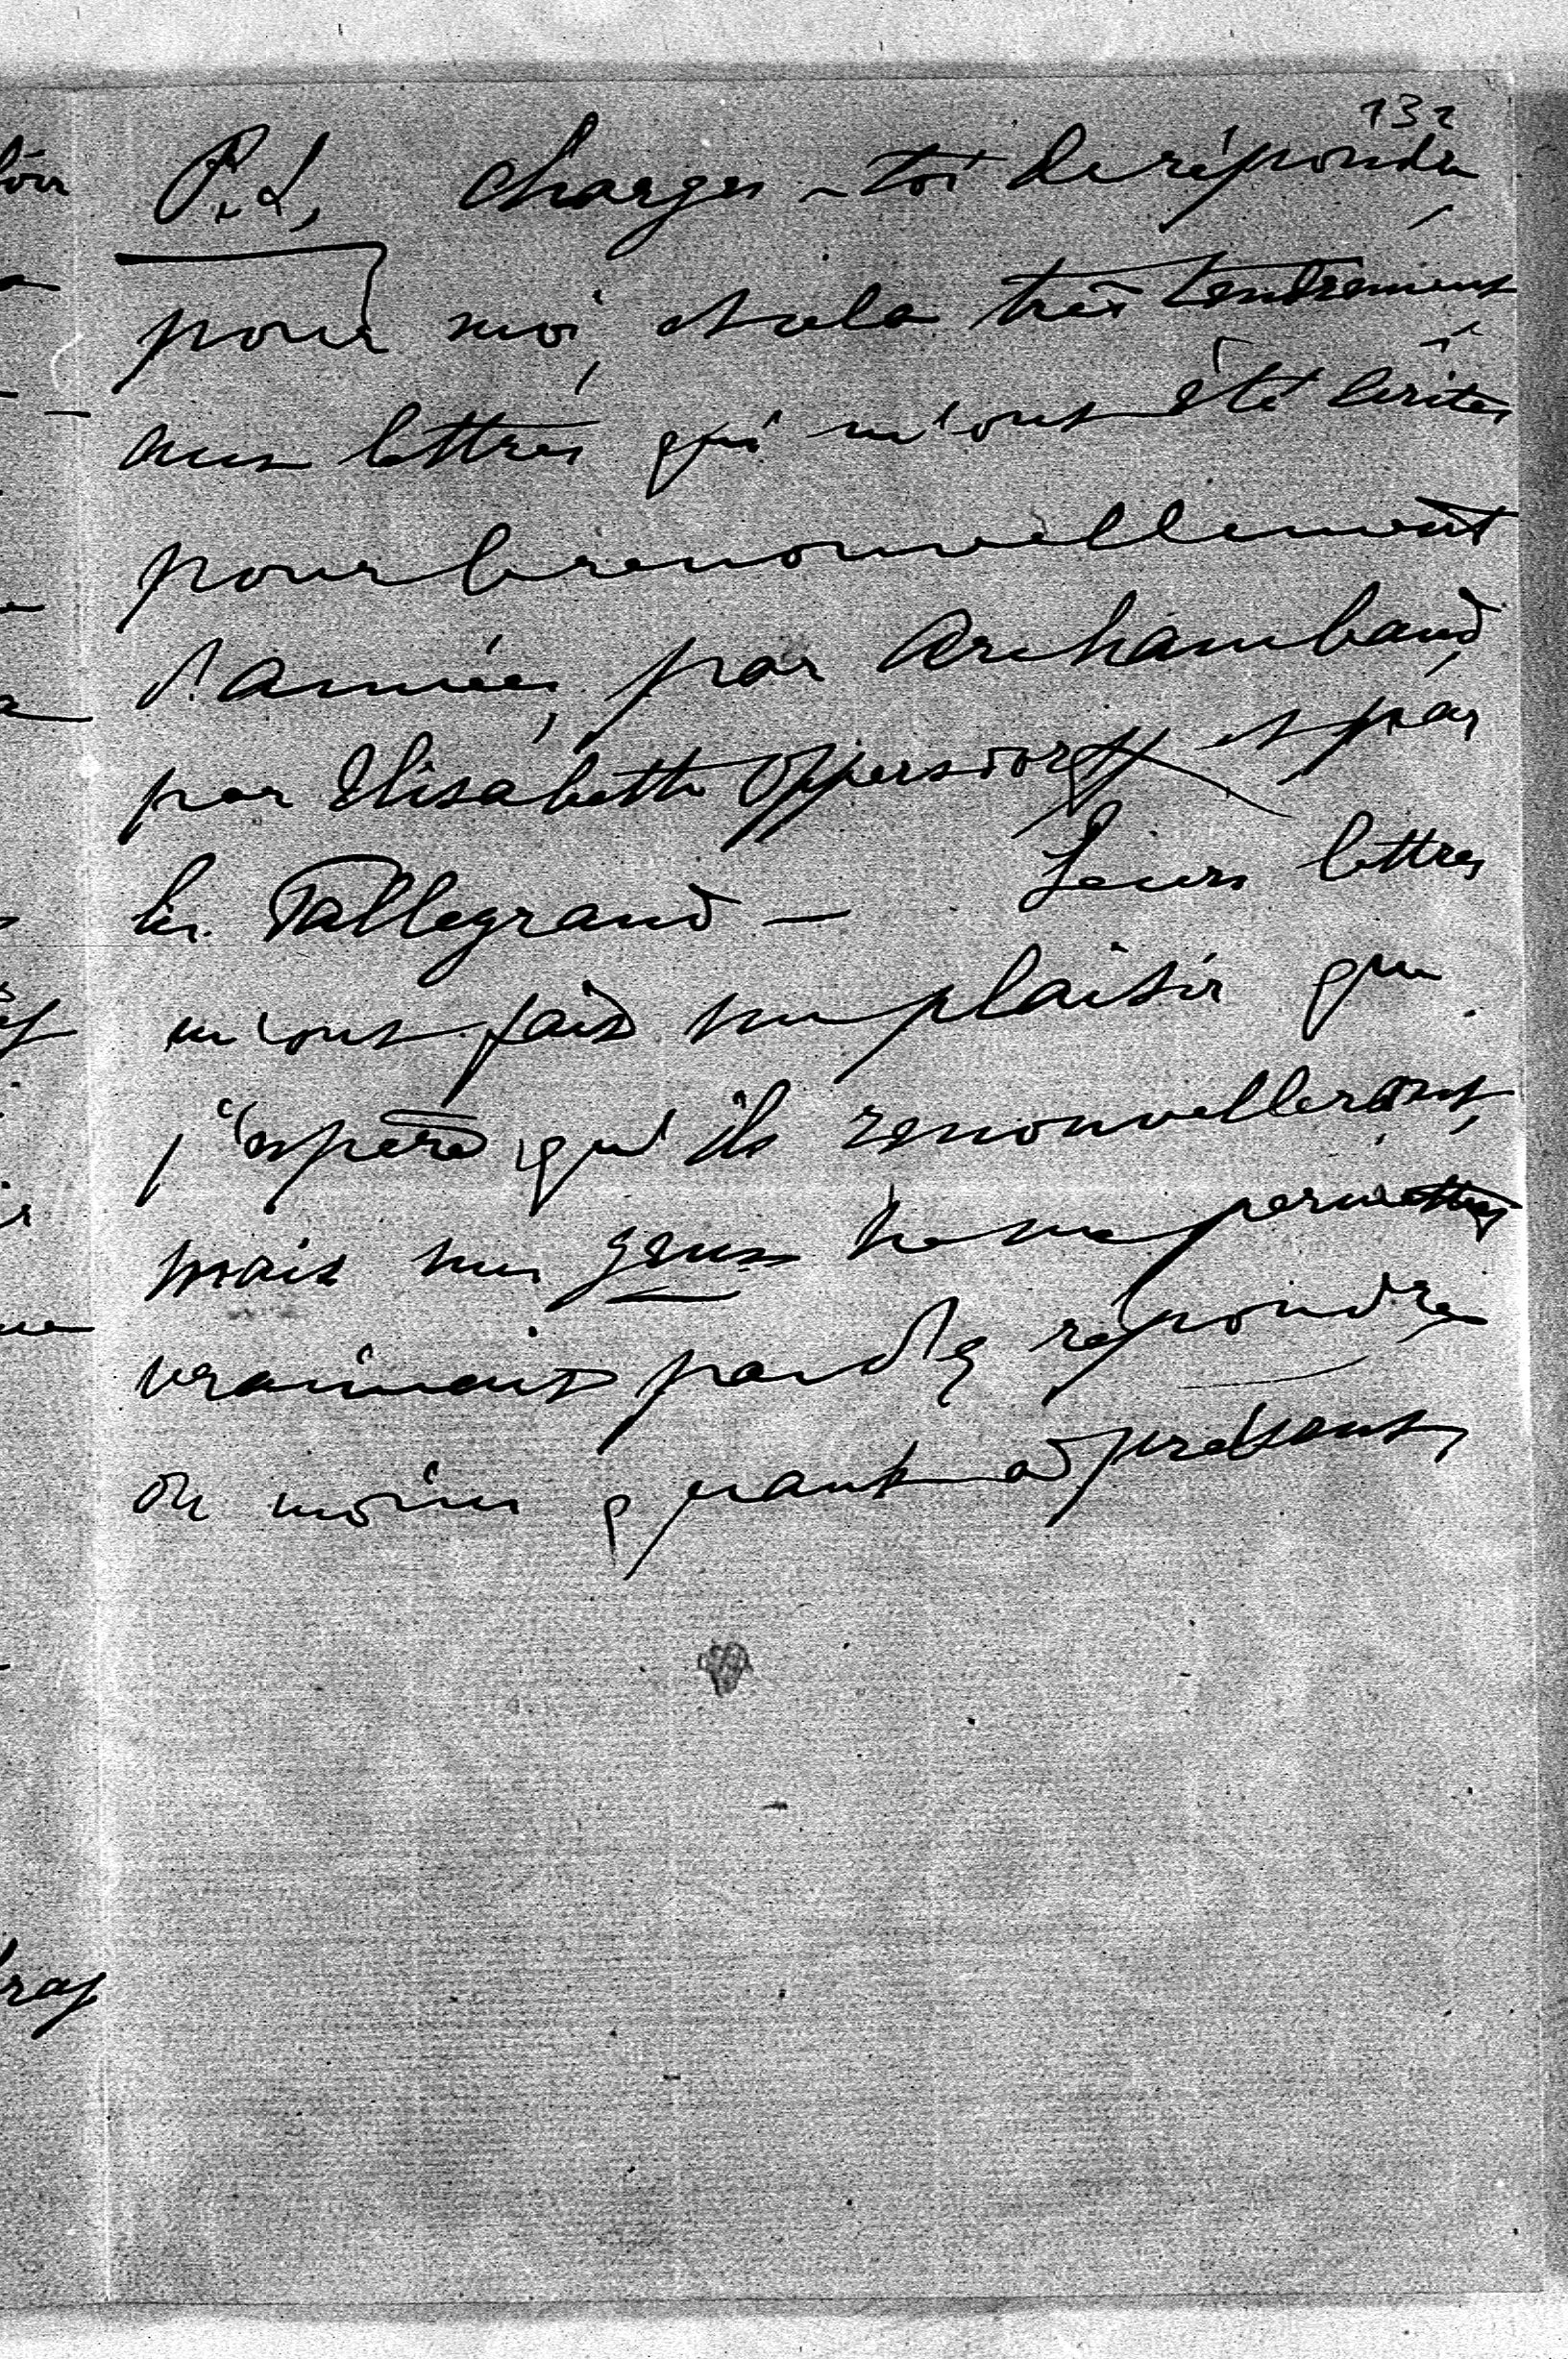 132
P.S, charges-toi de répondre
pour moi, et cela très tendrement
aux lettres qui m'ont été écrites
pour le renouvellement
d'année, par Archambaud,
par Elisabeth Oppersdorff et par
les Tallegrand — Leurs lettres
m'ont fait un plaisir que
j'espère qu'ils renouvelleront,
mais mes yeux ne me permettent
vraiment pas d'y répondre
du moins quant à présent,